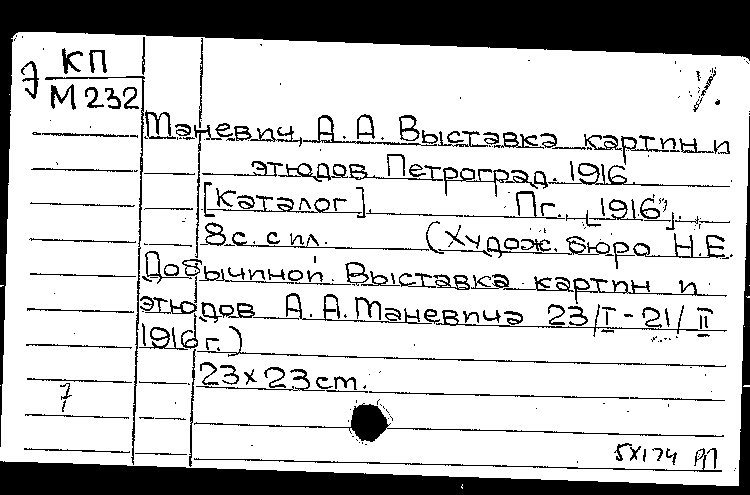 КП
М232
Маневич, А. А. Выставка картин и
этюдов. Петроград. 1916.
[Каталог]. Пг., [1916].
8 с. с ил. (Худож. бюро Н.Е.
Добычиной. Выставка картин и
этюдов А. А. Маневича 23/I - 21/II
1916 г.)
23x23 cm.
7
5X174